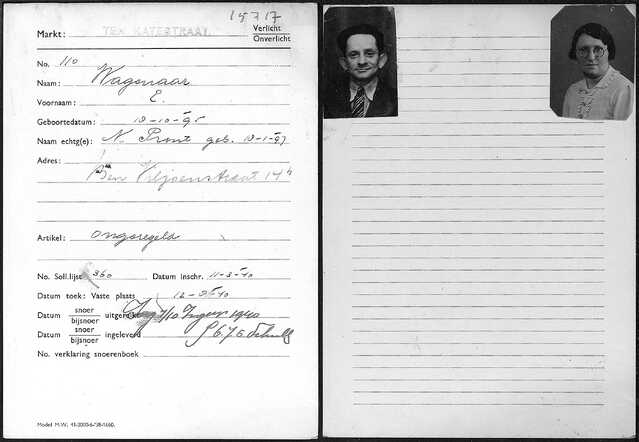 15717
Markt: TEN KATESTRAAT Verlicht
Onverlicht
No. 110
Naam: Wagenaar
Voornaam: E.
Geboortedatum: 10-10-95
Naam echtg(e): N. Pront geb. 10-1-97
Adres:
Ben Viljoenstraat 14 h
Artikel: ongeregeld
No. Soll.lijst 360 Datum Inschr. 11-3-40
Datum toek: Vaste plaats
Datum snoer uitgereikt 1940
bijsnoer
Datum snoer ingeleverd
bijsnoer
No. verklaring snoerenboek
Model M.W; 41-2000-6-'38-1660.